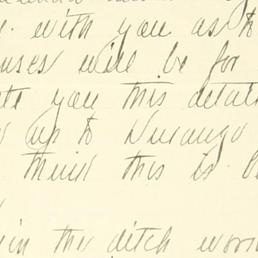 with you as to
uses will be for
te you this detail
up to Durango
think this is
in the ditch work